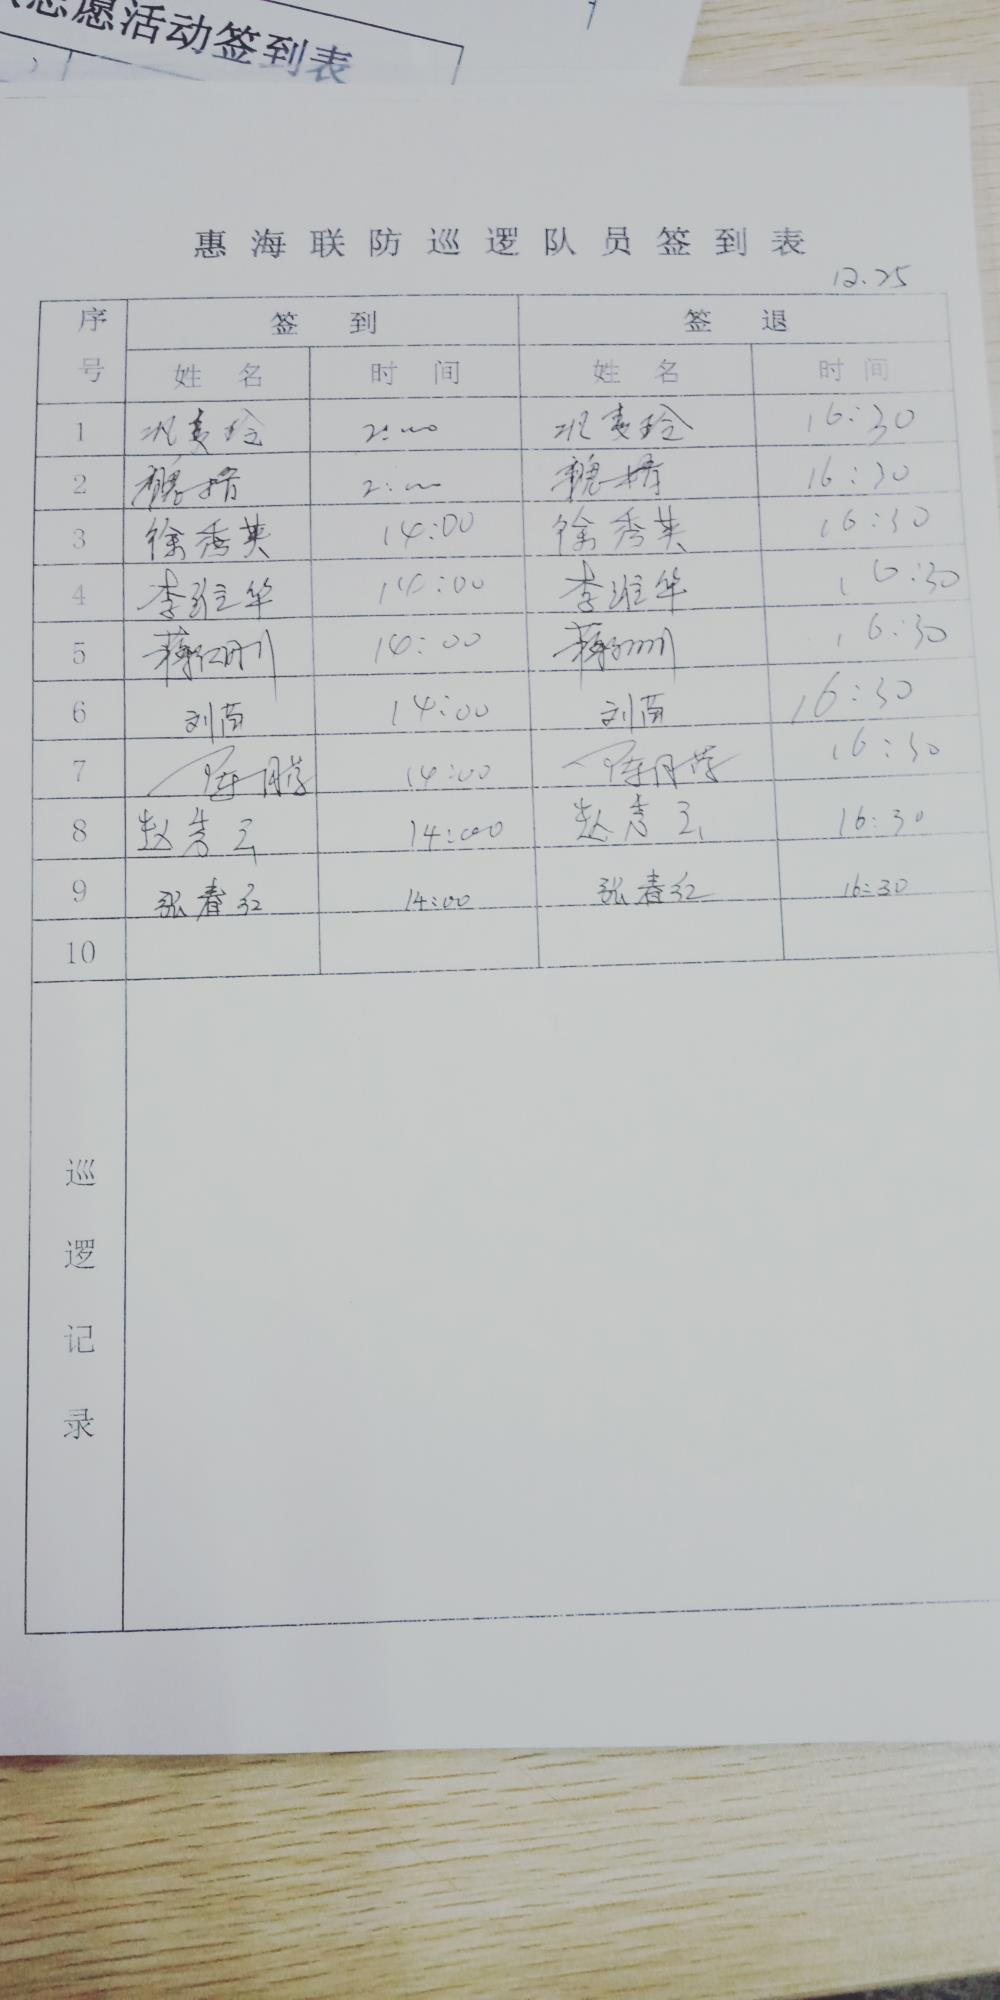 志愿活动签到表
惠海联防巡逻队员签到表
12.25
序号 签到 签退
姓名 时间 姓名 时间
1 2:00 16:30
2 2:00 16:30
3 徐秀英 14:00 徐秀英 16:30
4 李维华 14:00 李维华 16:30
5 14:00 16:30
6 刘苗 14:00 刘苗 16:30
7 14:00 16:30
8 赵秀玉 14:00 赵秀玉 16:30
9 张春红 14:00 张春红 16:30
10
巡逻记录